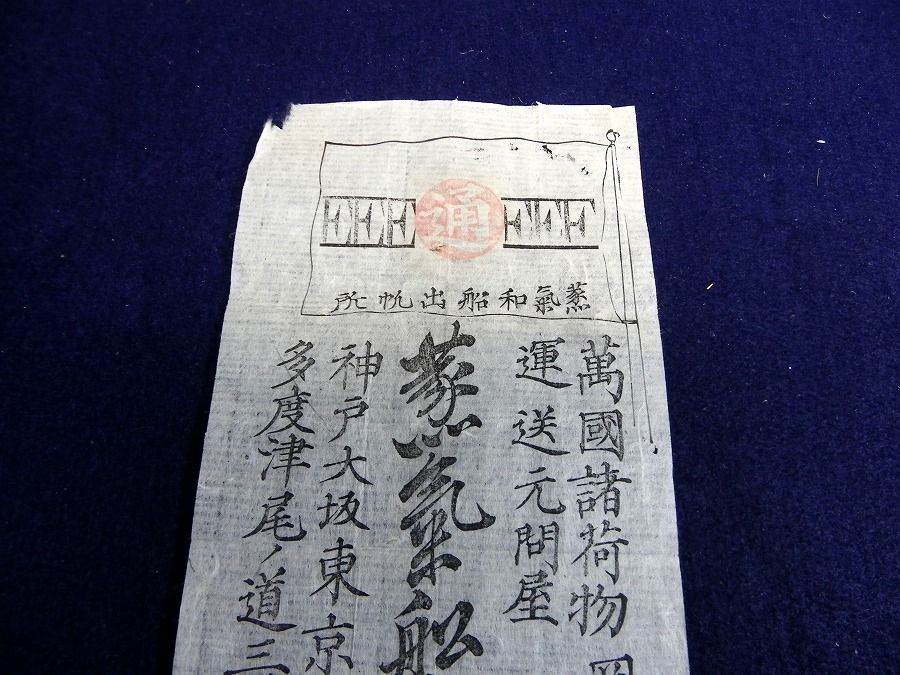 EEE通EEE
蒸氣和船出帆所
萬國諸荷物
運送元問屋
蒸氣船
神戸大坂東京
多度津尾ノ道三